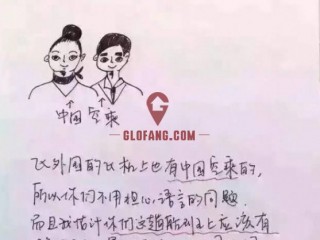 中国空乘
GLOFANG.COM
飞外国的飞机上也有中国空乘的,
所以你们不用担心语言的问题.
而且我估计你们这趟航班上应该有